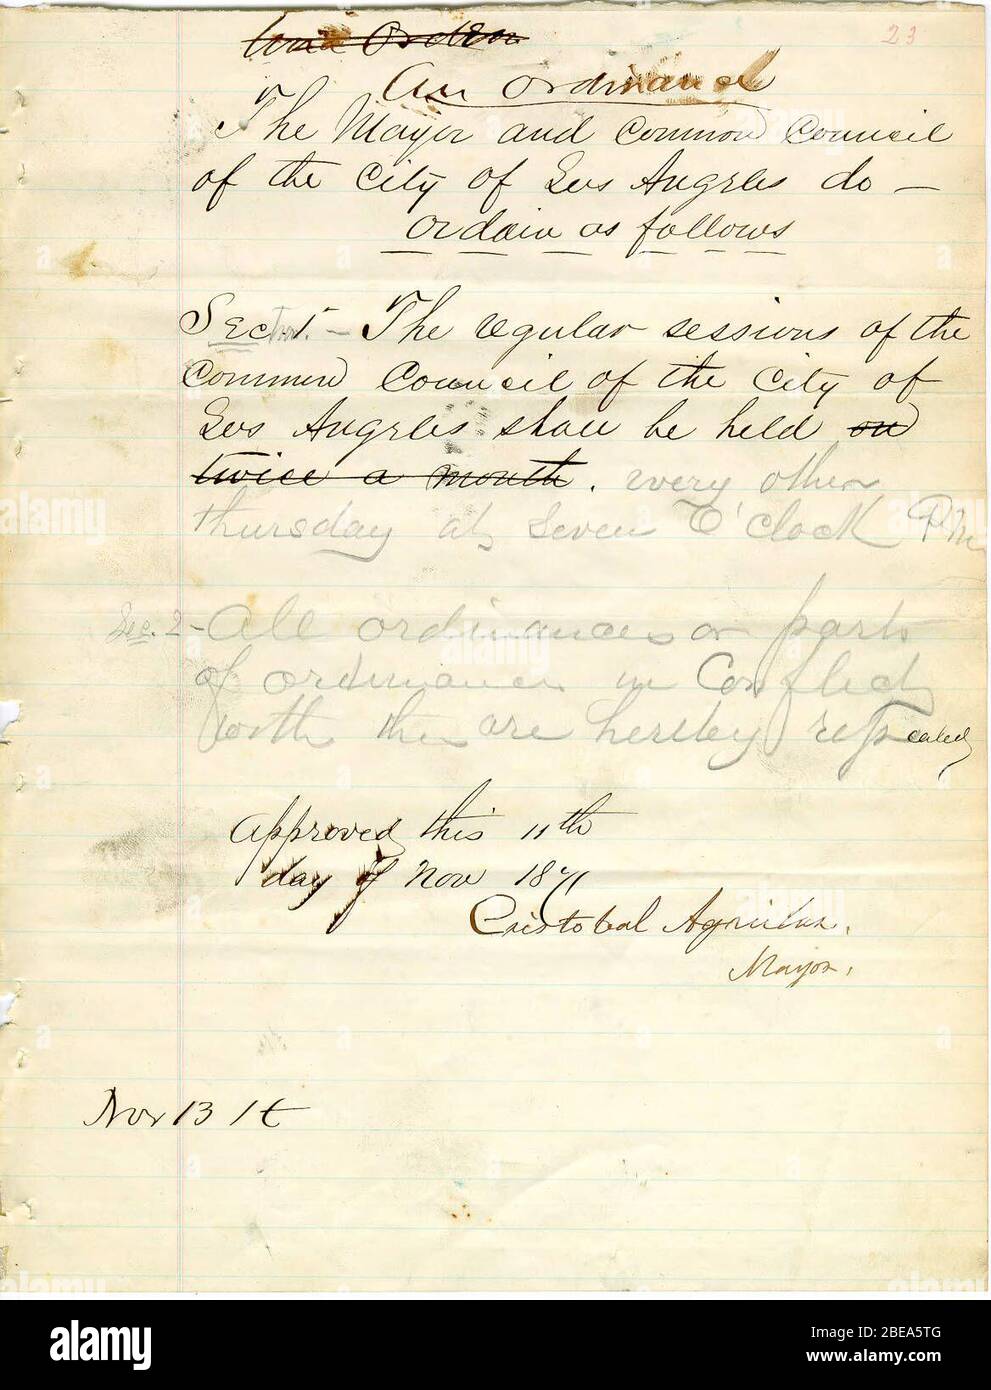 23
An Ordinance
The Mayor and Common Council
of the City of Los Angeles do —
ordain as follows
Section 1st — The regular sessions of the
Common Council of the City of
Los Angeles shall be held on
twice a month. every other
thursday at Seven O'clock P.M.
Sec. 2 - All ordinances or parts
of ordinances in Conflict
with this are hereby repealed
Approved this 11th
day of Nov 1871
Cristobal Aguilar.
Mayor.
Nov 13 1t
alamy
Image ID: 2BEA5TG
www.alamy.com